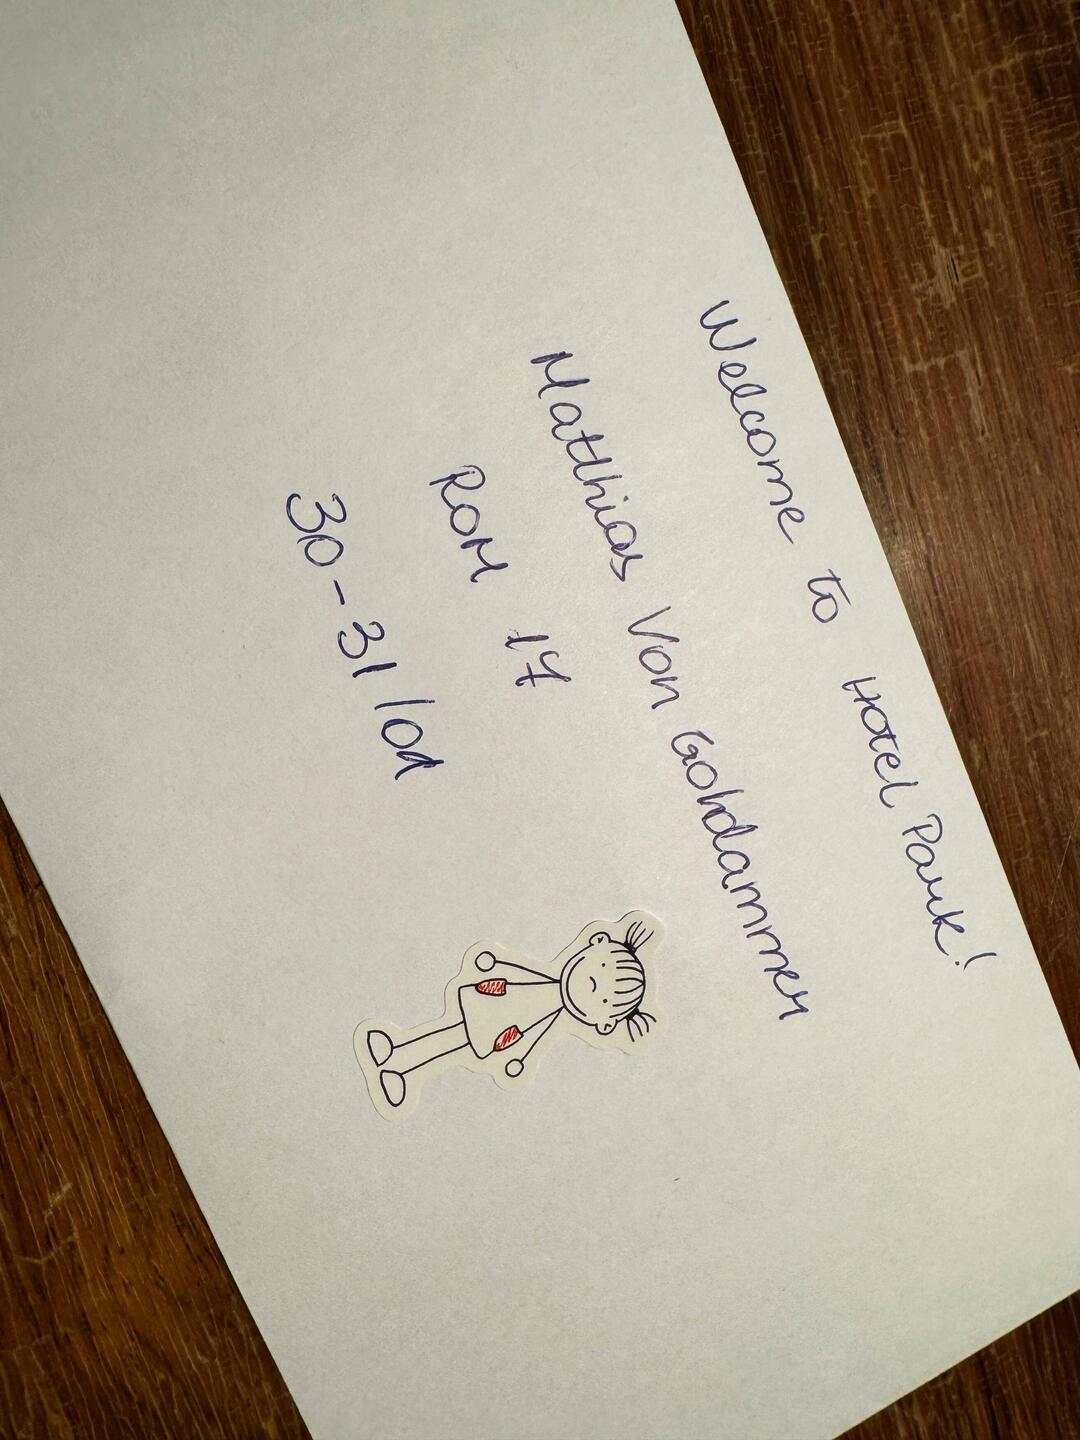 Welcome to Hotel Park!
Matthias Von Gohdammer
ROM 17
30-31/01